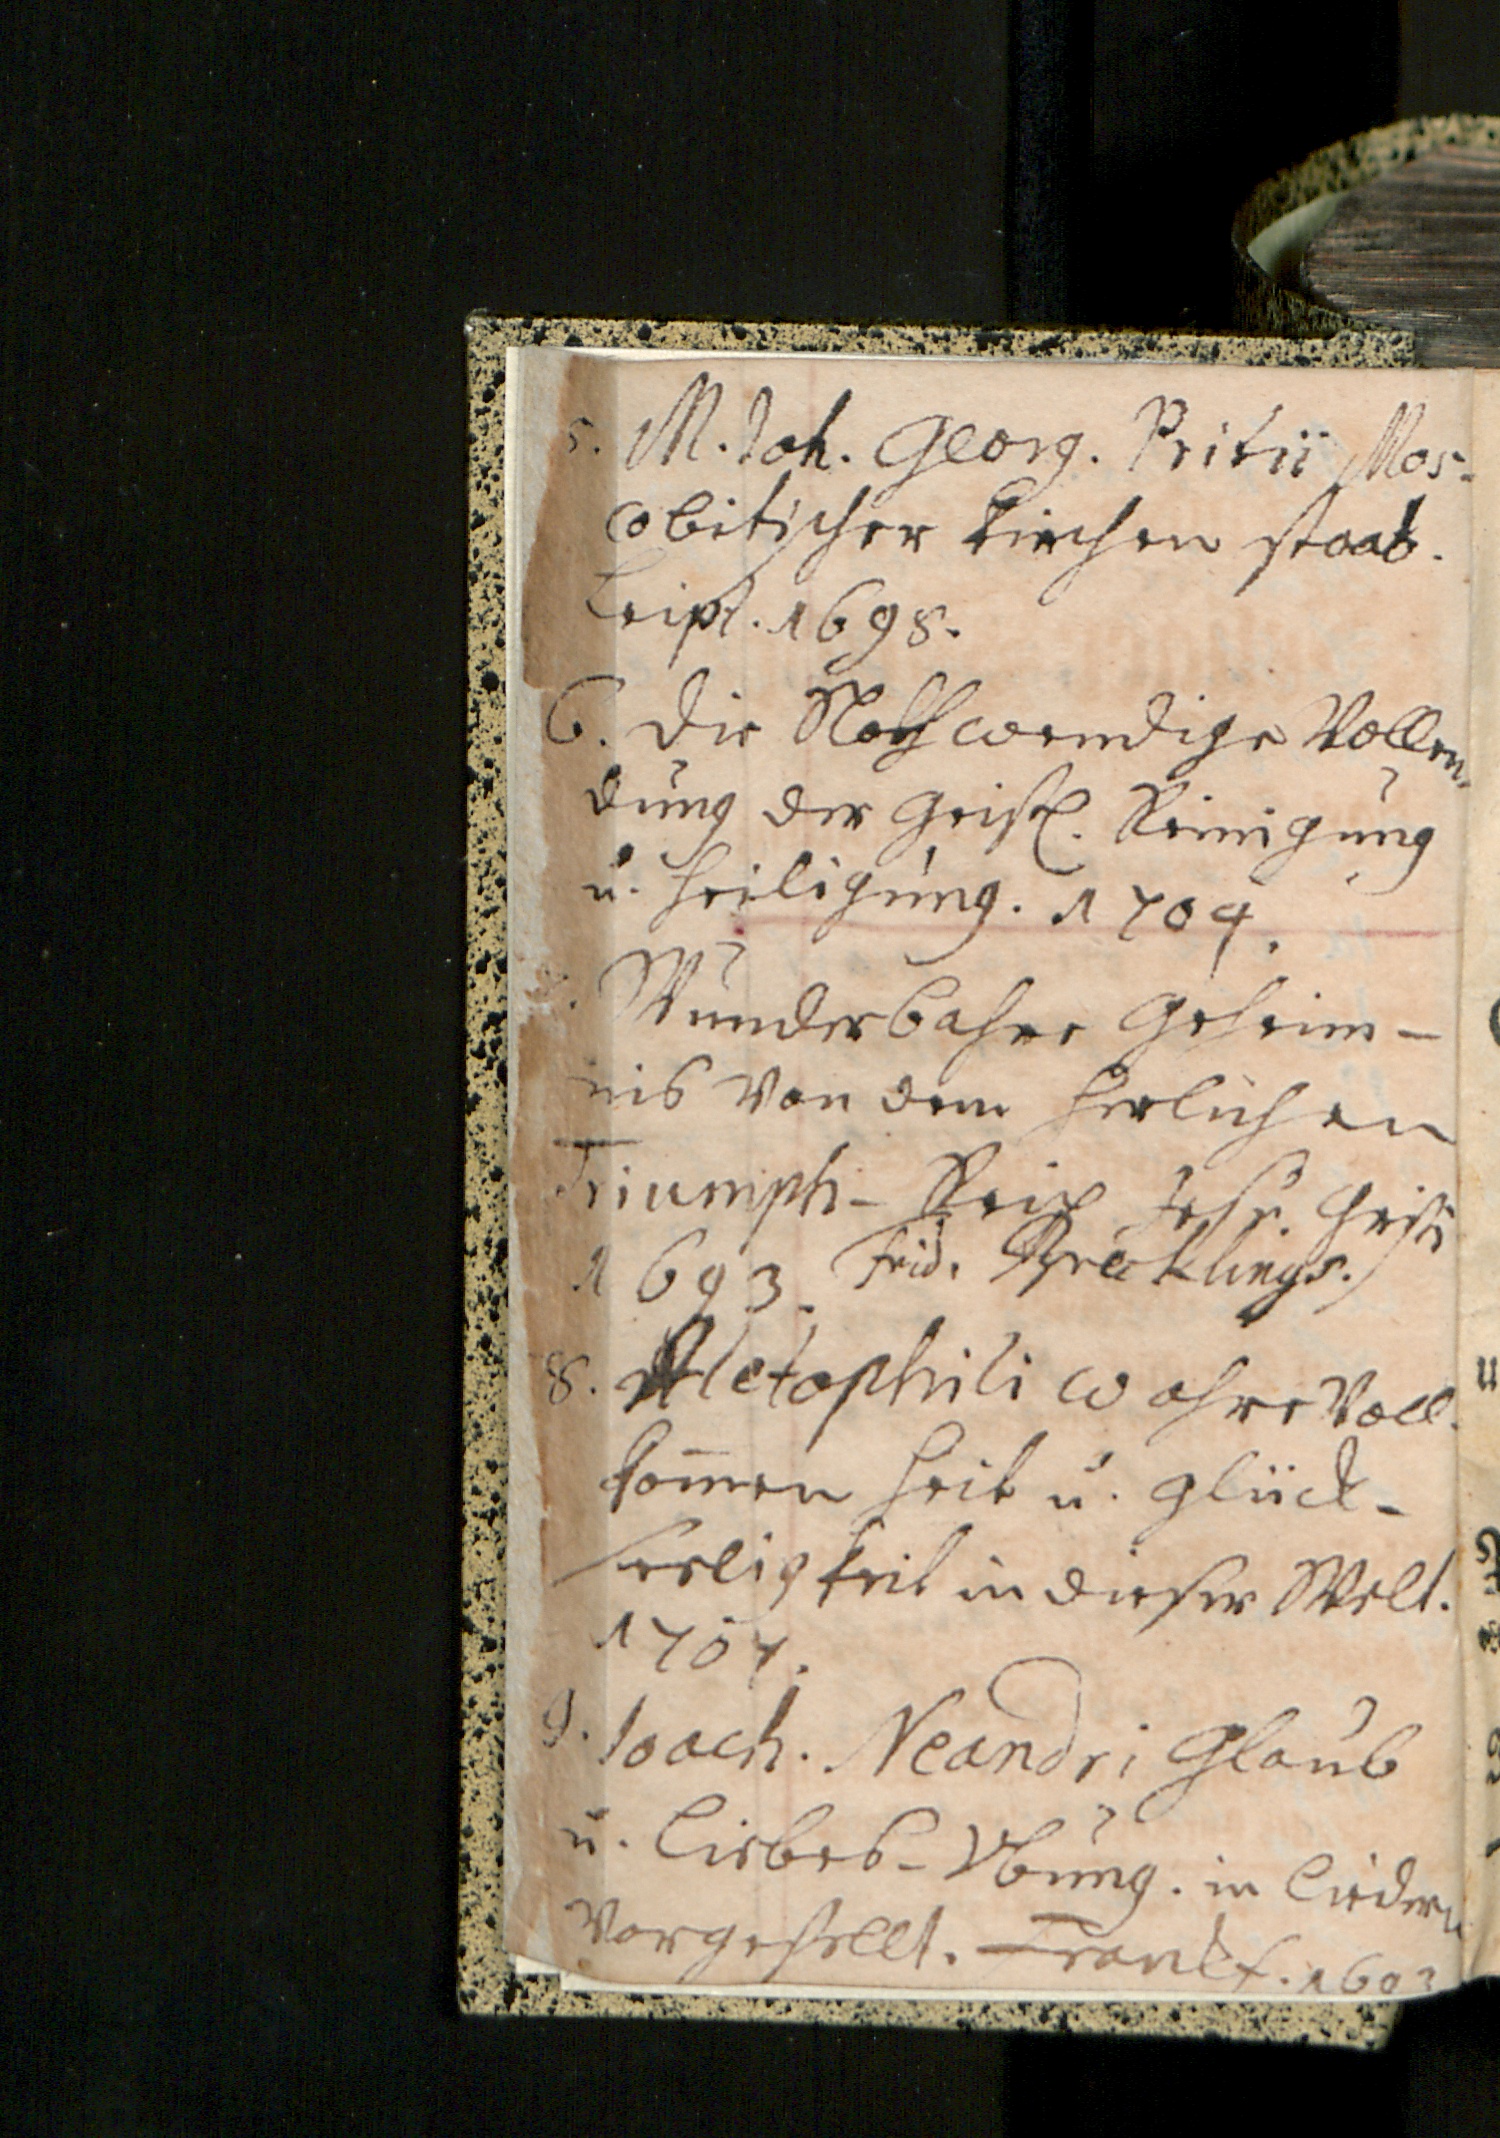 5. M. Joh. Georg. Pritii Mos-
cobitischer Kirchen staat.
Leipz. 1698.
6. Die Nothwendige Vollen-
dung der Geistl. Reinigung
u. Heiligung. 1704.
7. Wunderbahre Geheim-
nis von dem Herlichen
Triumph-Reich Jesu Christi
1693. Frid. Brecklings.
8. Aletophili wahre Voll-
kom̄enheit u. Glück-
seeligkeit in dieser Welt.
1707.
9. Joach. Neandri Glaub
u. Liebes-Vbung. in Liedern
vorgestellt. Franckf.